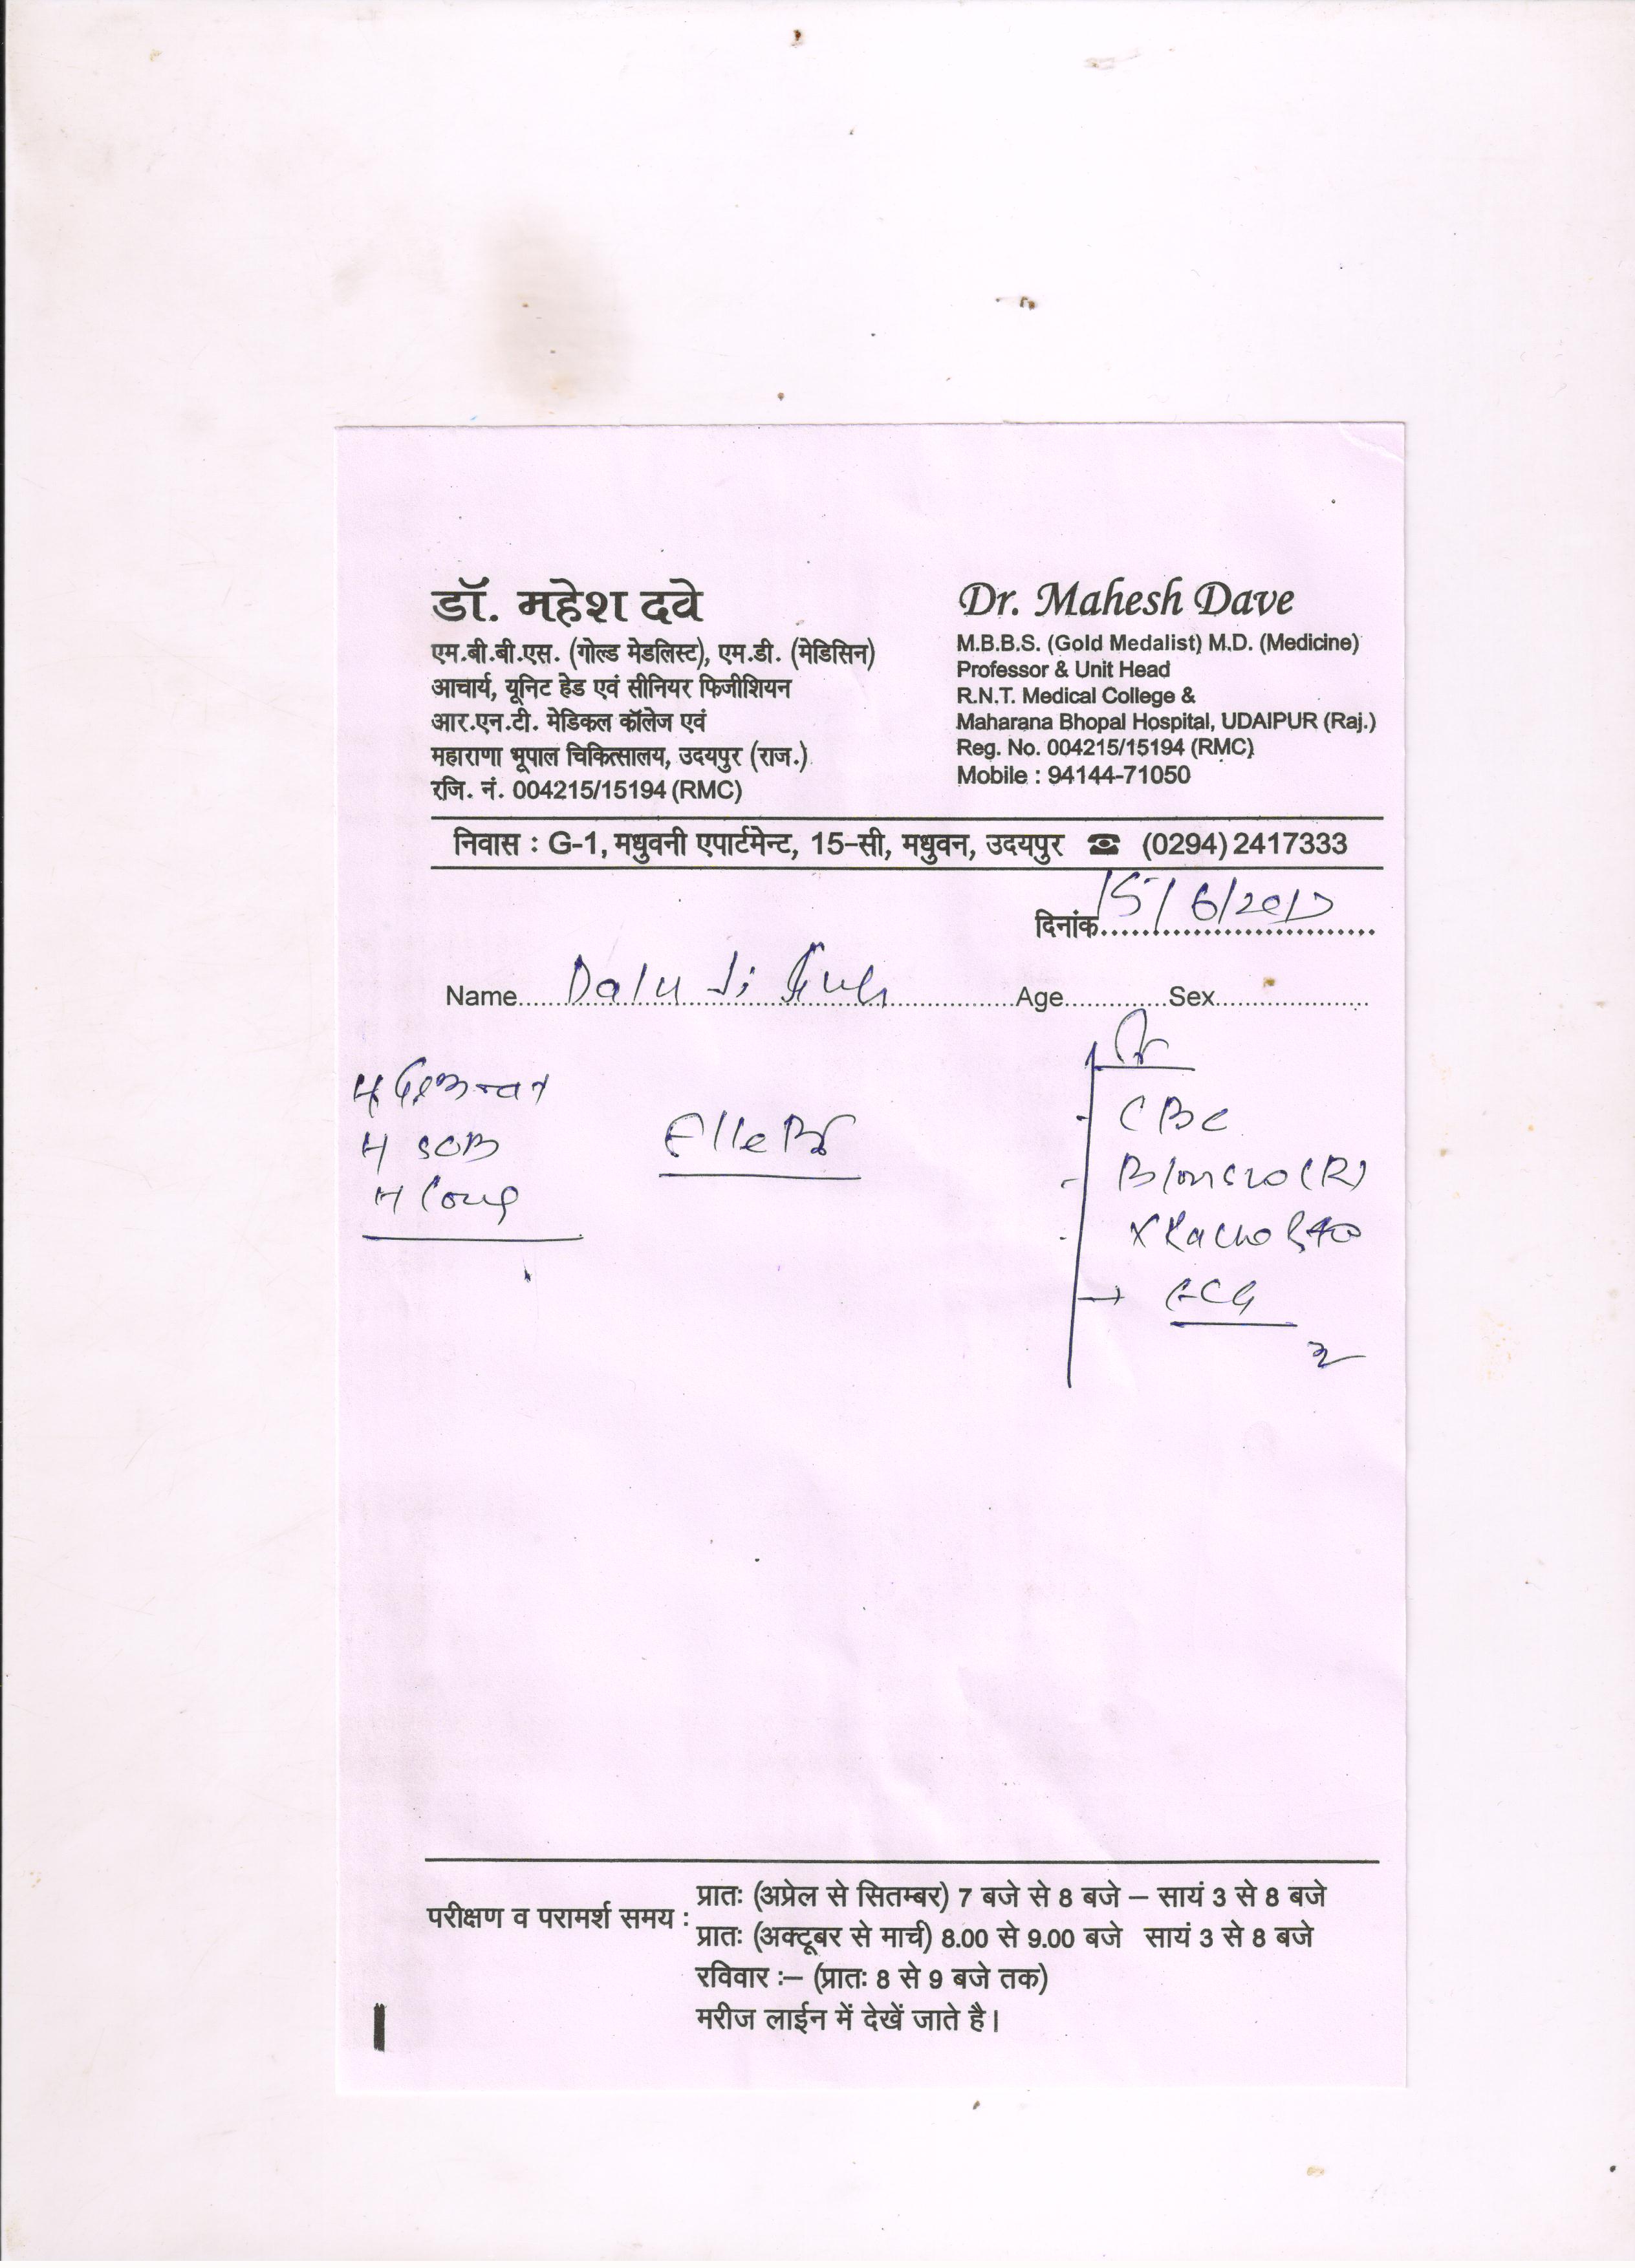 डॉ. महेश दवे
एम.बी.बी.एस. (गोल्ड मेडलिस्ट), एम.डी. (मेडिसिन)
आचार्य, यूनिट हेड एवं सीनियर फिजीशियन
आर.एन.टी. मेडिकल कॉलेज एवं
महाराणा भूपाल चिकित्सालय, उदयपुर (राज.)
रजि. नं. 004215/15194 (RMC)
Dr. Mahesh Dave
M.B.B.S. (Gold Medalist) M.D. (Medicine)
Professor & Unit Head
R.N.T. Medical College &
Maharana Bhopal Hospital, UDAIPUR (Raj.)
Reg. No. 004215/15194 (RMC)
Mobile : 94144-71050
निवास : G-1, मधुवनी एपार्टमेन्ट, 15-सी, मधुवन, उदयपुर ☎ (0294) 2417333
दिनांक 15/6/2017
Name Dalu Ji Age Sex
SOB
CBC
ECG
परीक्षण व परामर्श समय :
प्रातः (अप्रेल से सितम्बर) 7 बजे से 8 बजे – सायं 3 से 8 बजे
प्रातः (अक्टूबर से मार्च) 8.00 से 9.00 बजे सायं 3 से 8 बजे
रविवार :– (प्रातः 8 से 9 बजे तक)
मरीज लाईन में देखें जाते है।